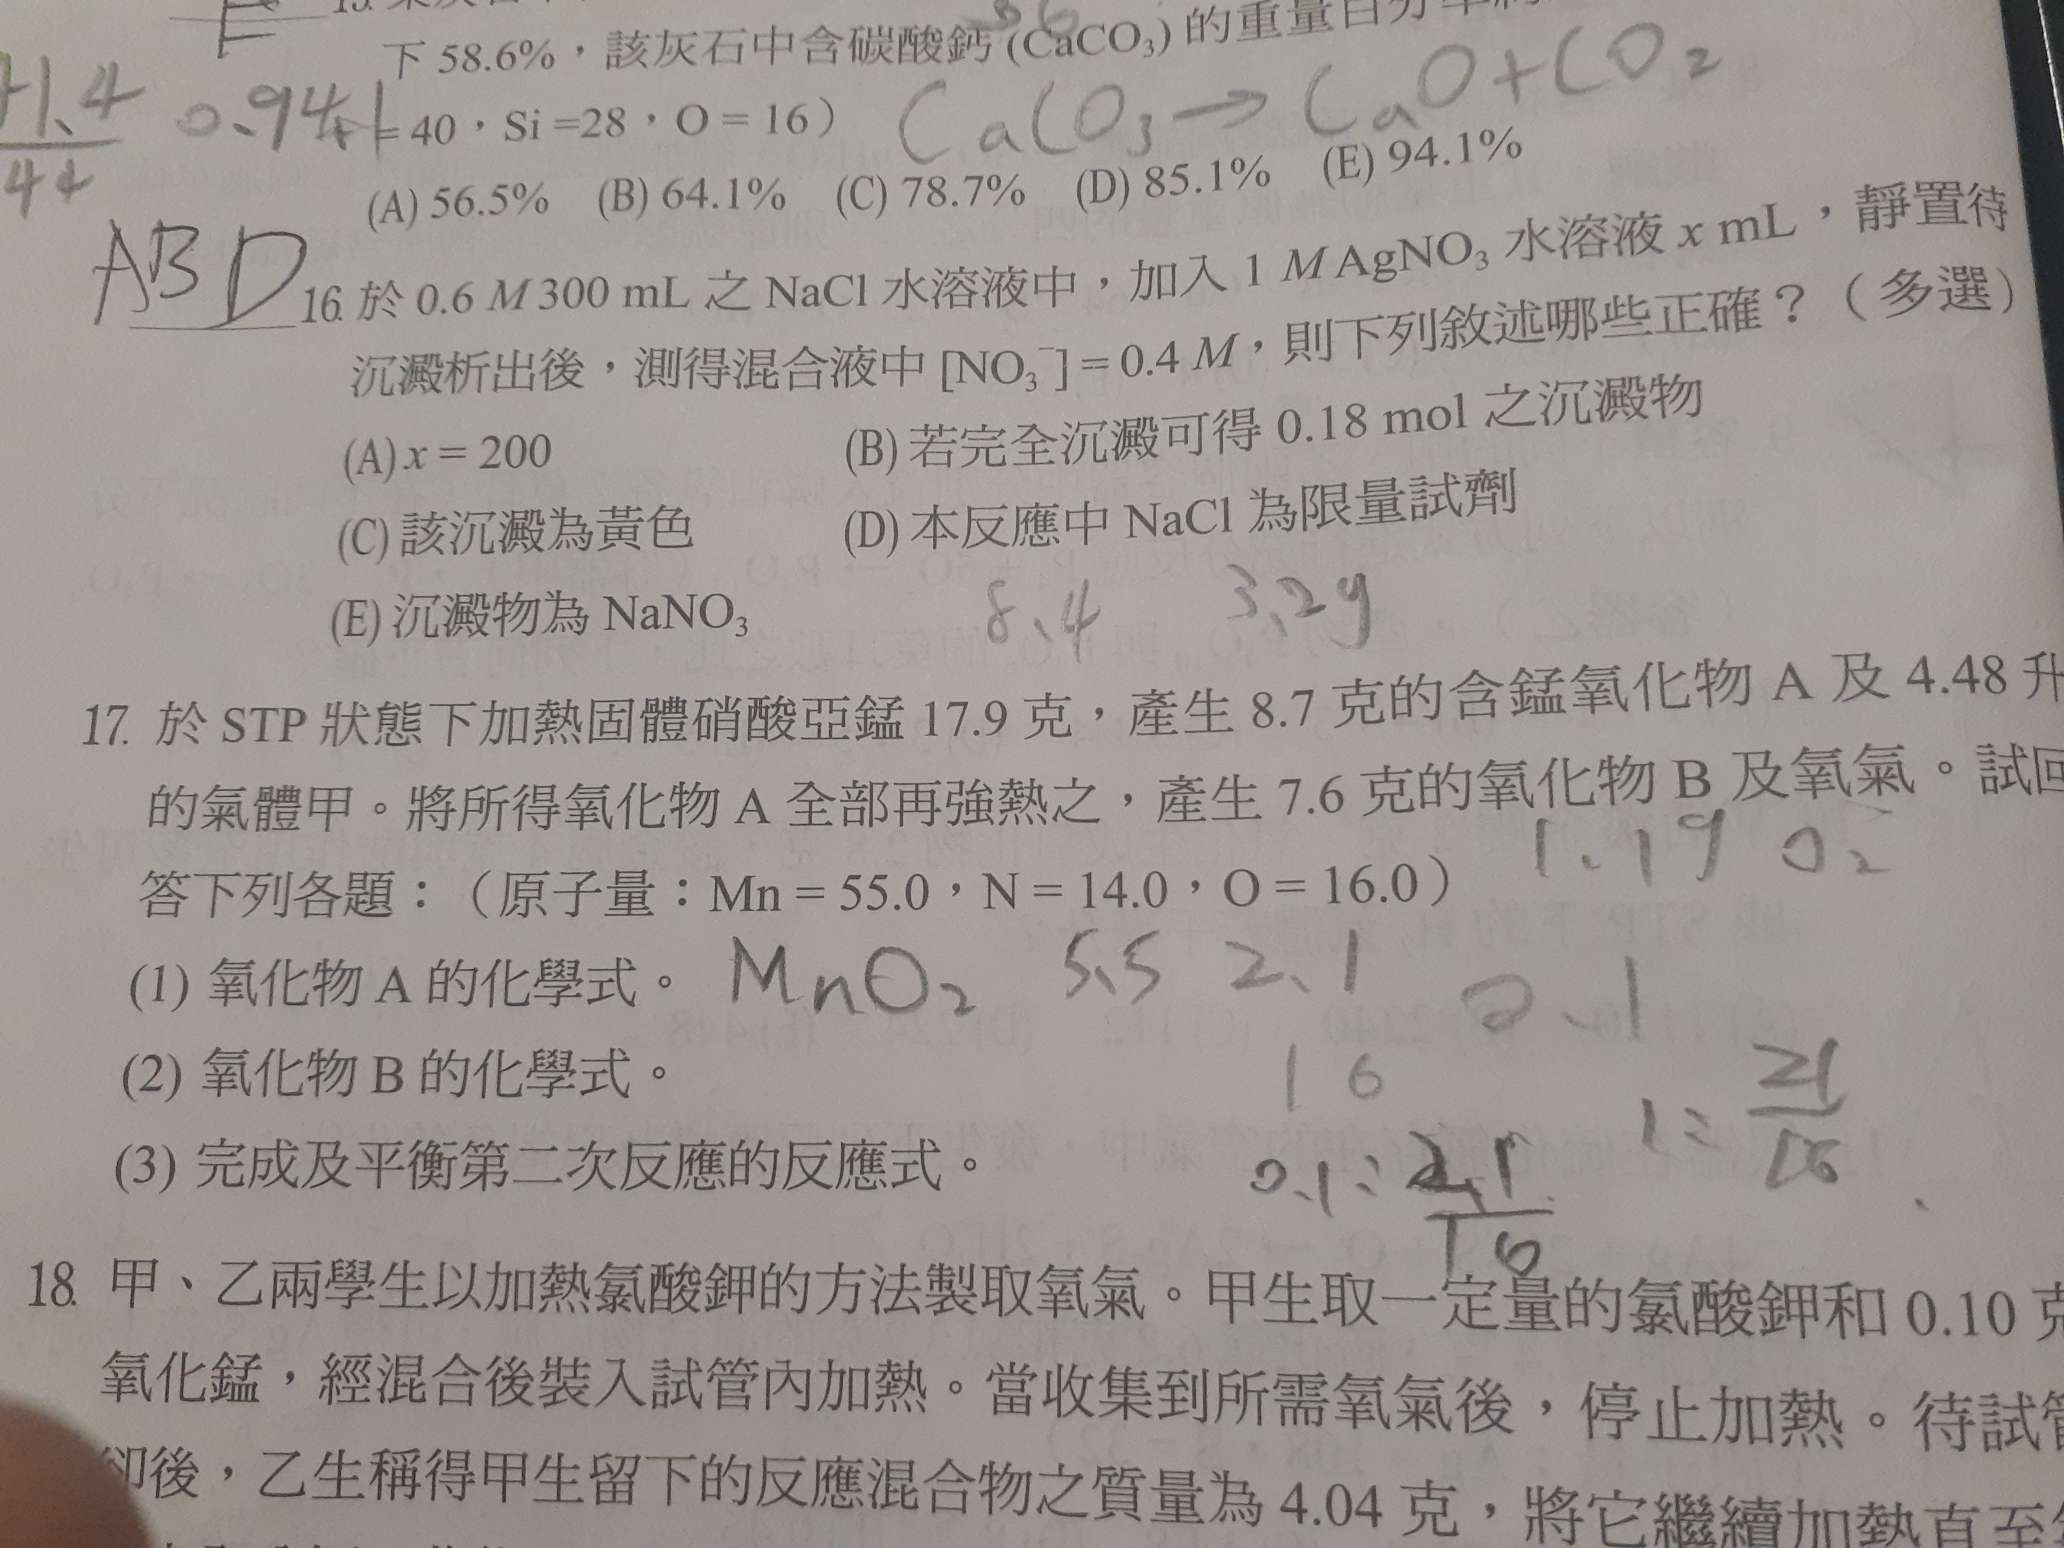 下 58.6%，該灰石中含碳酸鈣 (CaCO₃) 的重量百分率
= 40，Si =28，O = 16）
CaCO₃ → CaO + CO₂
1.4
44
0.941
(A) 56.5% (B) 64.1% (C) 78.7% (D) 85.1% (E) 94.1%
ABD
16. 於 0.6 M 300 mL 之 NaCl 水溶液中，加入 1 M AgNO₃ 水溶液 x mL，靜置待
沉澱析出後，測得混合液中 [NO₃⁻] = 0.4 M，則下列敘述哪些正確？（多選）
(A) x = 200 (B) 若完全沉澱可得 0.18 mol 之沉澱物
(C) 該沉澱為黃色 (D) 本反應中 NaCl 為限量試劑
(E) 沉澱物為 NaNO₃
8.4 3.2g
17. 於 STP 狀態下加熱固體硝酸亞錳 17.9 克，產生 8.7 克的含錳氧化物 A 及 4.48 升
的氣體甲。將所得氧化物 A 全部再強熱之，產生 7.6 克的氧化物 B 及氧氣。試回
1.1g O₂
答下列各題：（原子量：Mn = 55.0，N = 14.0，O = 16.0）
(1) 氧化物 A 的化學式。 MnO₂ 5.5 2.1
2.1
(2) 氧化物 B 的化學式。
16
21
16
(3) 完成及平衡第二次反應的反應式。
0.1 : 2.1
16
18. 甲、乙兩學生以加熱氯酸鉀的方法製取氧氣。甲生取一定量的氯酸鉀和 0.10 克
氧化錳，經混合後裝入試管內加熱。當收集到所需氧氣後，停止加熱。待試管
卻後，乙生稱得甲生留下的反應混合物之質量為 4.04 克，將它繼續加熱直至